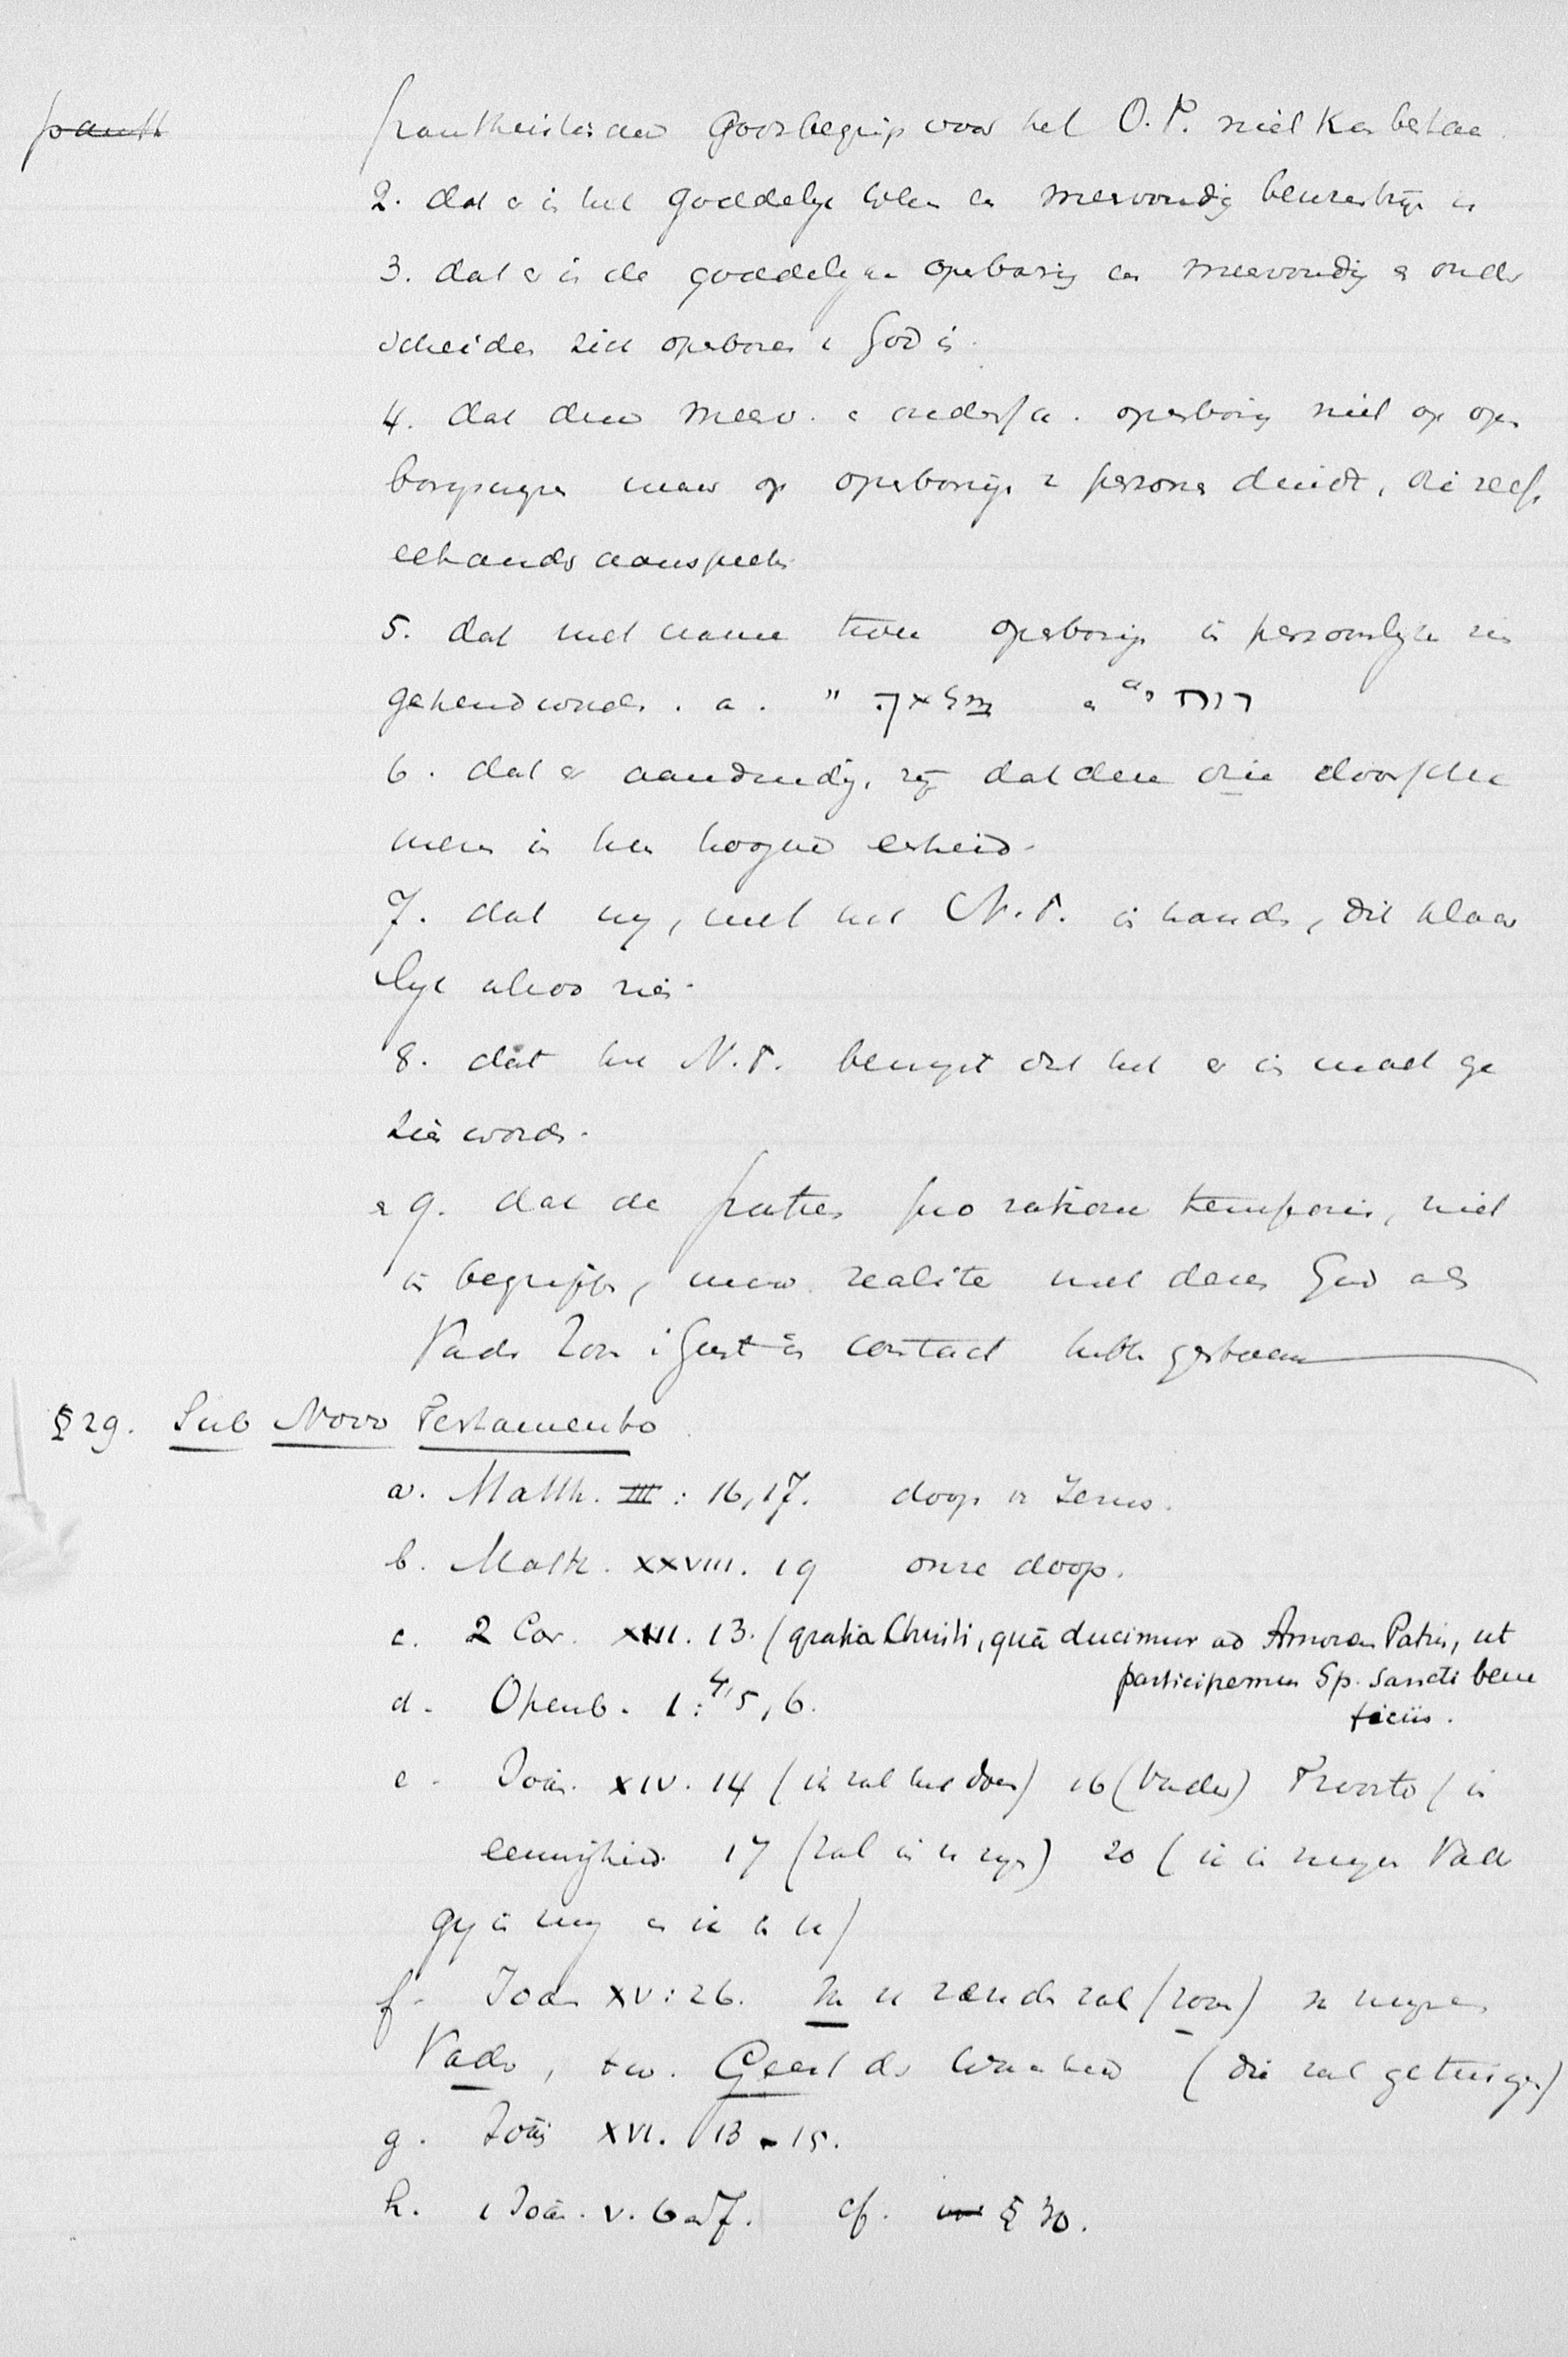 panth
pantheistischen Godsbegrip voor het O.T. niet kan bestaan.
2. dat er in het goddelijk wezen een meervoudig bewustzijn is
3. dat er in de goddelijke openbaring een meervoudig en onder
scheiden zich openbaren in God is.
4. dat deze meerv. en ondersch. openbaring niet op open
baringen maar op openbaring v personen duidt, die
elkander aanspreken
5. dat met name twee openbaring in personlijke zin
gekend worden. a. " מלאך " רוח
6. dat er aanduiding zijn dat deze drie
in hun hooger eenheid.
7. dat wij, met het N.T. in handen, dit klaar
lijk alzoo zien.
8. dat het N.T. bewijst dat het er in moet ge
zien worden.
en 9. dat de patres pro ratione temporis, niet
in begrippen, maar realite met dezen God als
Vader Zoon en Geest in contact hebben gestaan
§ 29. Sub Novo Testamento
a. Matth. III : 16, 17. doop v Jezus.
b. Matth. XXVIII. 19 onze doop.
c. 2 Cor. XIII. 13. (gratia Christi, quâ ducimur ad Amorem Patris, ut
participemus Sp. Sancti bene
ficiis.
d. Openb. 1 : 4, 5, 6.
e. Joan. XIV. 14 (ik zal het doen) 16 (Vader) Trooster (in
eeuwigheid 17 (zal in u zijn) 20 (ik in mijn Vader
gij in mij en ik in u)
f. Joan XV : 26. u zenden zal (zoon) v mijnen
Vader, Geest der Waarheid (die zal getuigen)
g. Joan XVI. 13 - 15.
h. 1 Joan. V. 6 en 7. cf. § 30.